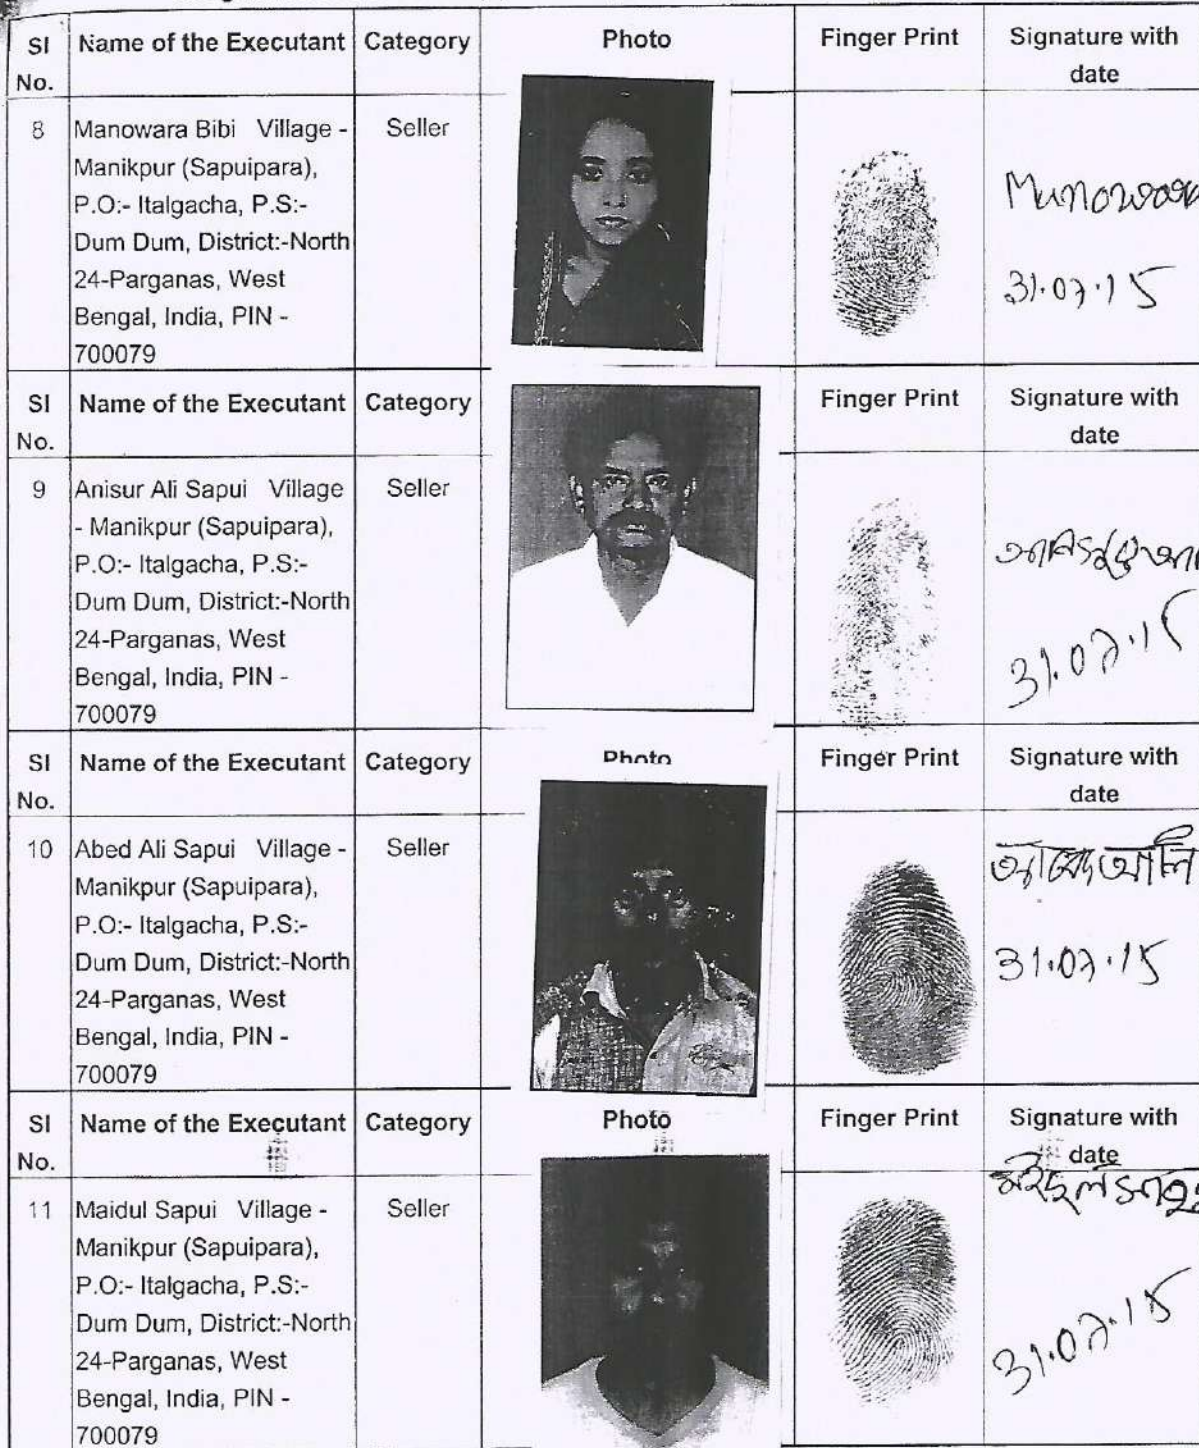 Sl Name of the Executant Category Photo Finger Print Signature with
No. date
8 Manowara Bibi Village - Seller
Manikpur (Sapuipara),
P.O:- Italgacha, P.S:-
Dum Dum, District:-North
24-Parganas, West
Bengal, India, PIN -
700079
31.07.15
Sl Name of the Executant Category Finger Print Signature with
No. date
9 Anisur Ali Sapui Village Seller
- Manikpur (Sapuipara),
P.O:- Italgacha, P.S:-
Dum Dum, District:-North
24-Parganas, West
Bengal, India, PIN -
700079
31.07.15
Sl Name of the Executant Category Photo Finger Print Signature with
No. date
10 Abed Ali Sapui Village - Seller
Manikpur (Sapuipara),
P.O:- Italgacha, P.S:-
Dum Dum, District:-North
24-Parganas, West
Bengal, India, PIN -
700079
আবেদ আলি
31.07.15
Sl Name of the Executant Category Photo Finger Print Signature with
No. date
11 Maidul Sapui Village - Seller
Manikpur (Sapuipara),
P.O:- Italgacha, P.S:-
Dum Dum, District:-North
24-Parganas, West
Bengal, India, PIN -
700079
31.07.15